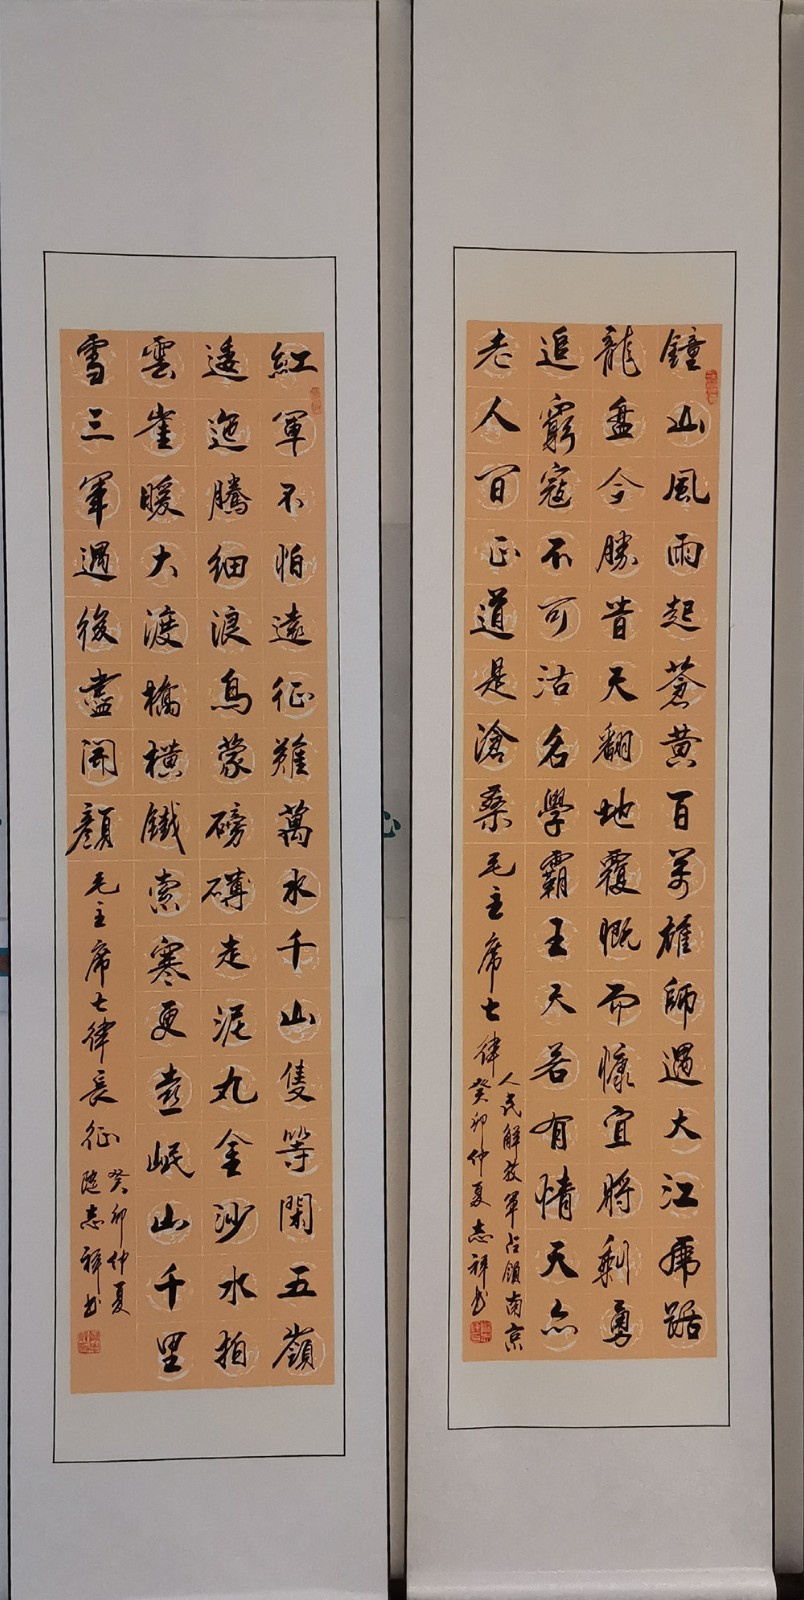 鐘山風雨起蒼黄百萬雄師過大江虎踞
龍盘今勝昔天翻地覆慨而慷宜將剩勇
追窮寇不可沽名學霸王天若有情天亦
老人間正道是滄桑毛主席七律
人民解放軍占領南京
癸卯仲夏志祥书
紅軍不怕遠征難萬水千山隻等閑五嶺
逶迤騰細浪烏蒙磅礴走泥丸金沙水拍
雲崖暖大渡橋横鐵索寒更喜岷山千里
雪三軍過後盡開顔毛主席七律長征
癸卯仲夏
志祥书